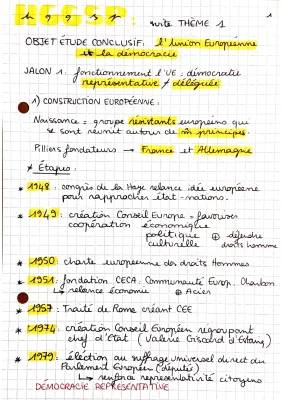 HGGSP : suite THÈME 1
1
OBJET ÉTUDE CONCLUSIF : l'Union Européenne
et la démocratie
JALON 1 : fonctionnement l'UE : démocratie
représentative ≠ déléguée
1) CONSTRUCTION EUROPÉENNE :
Naissance = groupe résistants européens qui
se sont réunit autour de principes.
Pilliers fondateurs → France et Allemagne
* Étapes :
* 1948 : congrès de la Haye relance idée européenne
pour rapprocher état-nations.
* 1949 : création Conseil Europe = favoriser
coopération économique
politique ⊕ défendre
culturelle droits homme
* 1950 : charte européenne des droits Hommes
* 1951 : fondation CECA : Communauté Europ. Charbon
↳ relance économie ⊕ Acier
* 1957 : Traité de Rome créant CEE
* 1974 : création Conseil Européen regroupant
chef d'État (Valérie Giscard d'Estaing)
* 1979 : élection au suffrage universel direct du
Parlement Européen (députés)
↳ renforce représentativité citoyens
DÉMOCRATIE REPRÉSENTATIVE